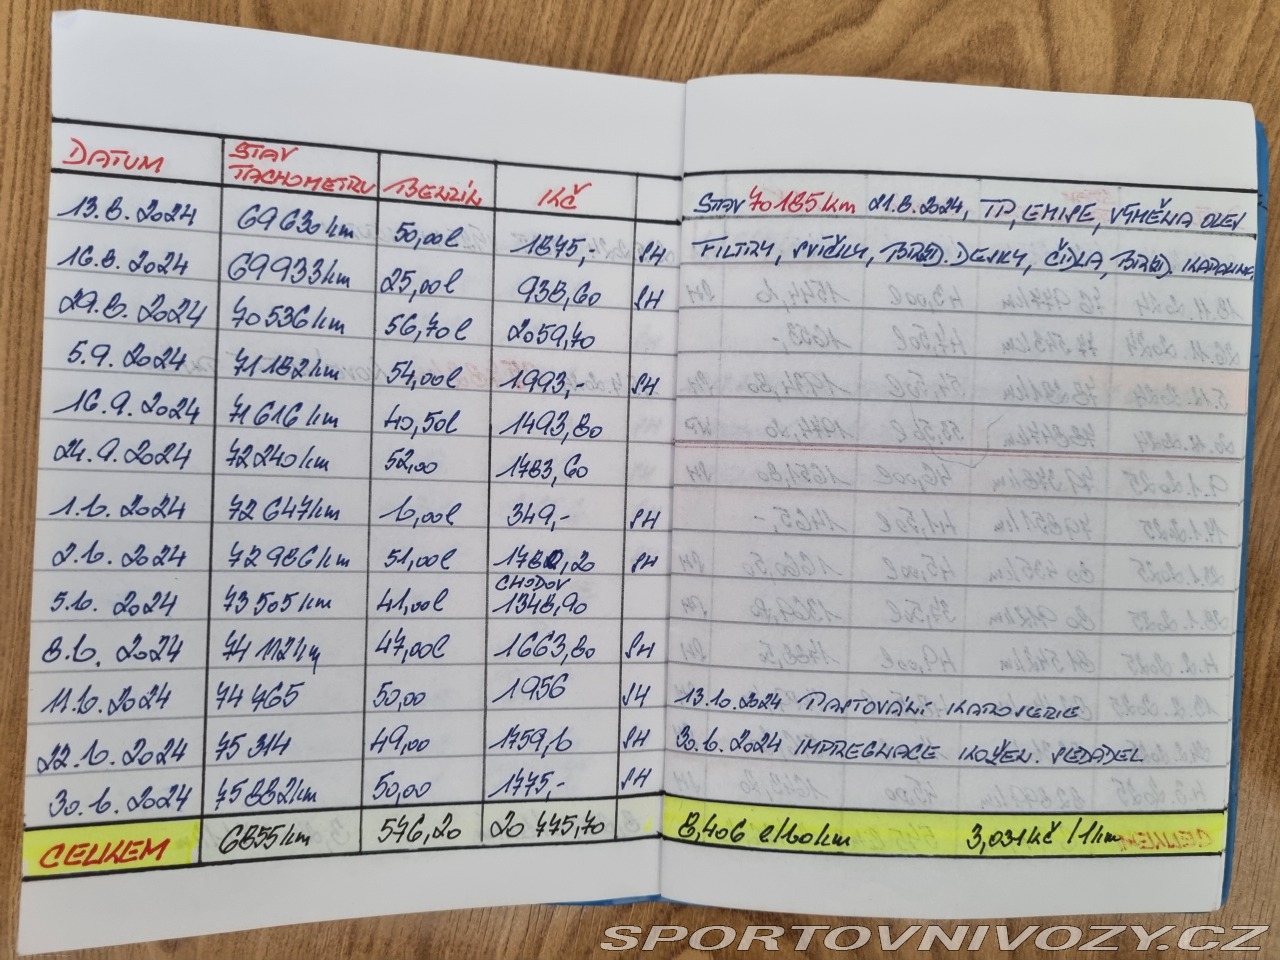 DATUM STAV TACHOMETRU BENZÍN KČ
13.8.2024 69630km 50,00l 1875,- SH
16.8.2024 69933km 25,00l 938,60 SH
29.8.2024 70536km 56,70l 2059,70
5.9.2024 71182km 54,00l 1.993,- SH
16.9.2024 71616km 40,50l 1493,80
24.9.2024 72240km 52,00 1783,60
1.10.2024 72647km 10,00l 349,- SH
2.10.2024 72986km 51,00l 1782,20 SH
CHODOV
5.10.2024 73505km 41,00l 1348,90
8.10.2024 47,00l 1663,80 SH
11.10.2024 74765 50,00 1956 SH
22.10.2024 75314 49,00 1759,10 SH
30.10.2024 75882km 50,00 1775,- SH
CELKEM 6855km 576,20 20775,70
STAV 70185km 21.8.2024, TP, EMISE, VÝMĚNA OLEJ
FILTRY, SVÍČKY, BRZD. DESKY, ČIDLA, BRZD. KAPALINA
13.10.2024 PASTOVÁNÍ KAROSERIE
30.10.2024 IMPREGNACE KOŽEN. SEDADEL
8,406 l/100km 3,031Kč/1km
SPORTOVNIVOZY.CZ